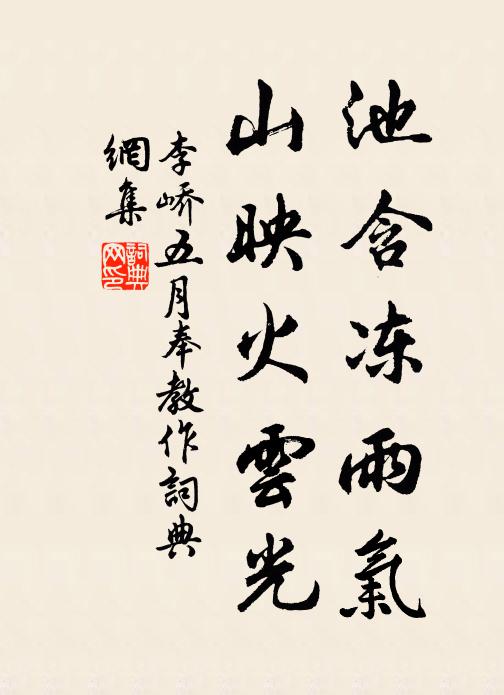 池含冻雨氣
山映火雲光
李峤五月奉教作詞典
網集
詞典网印